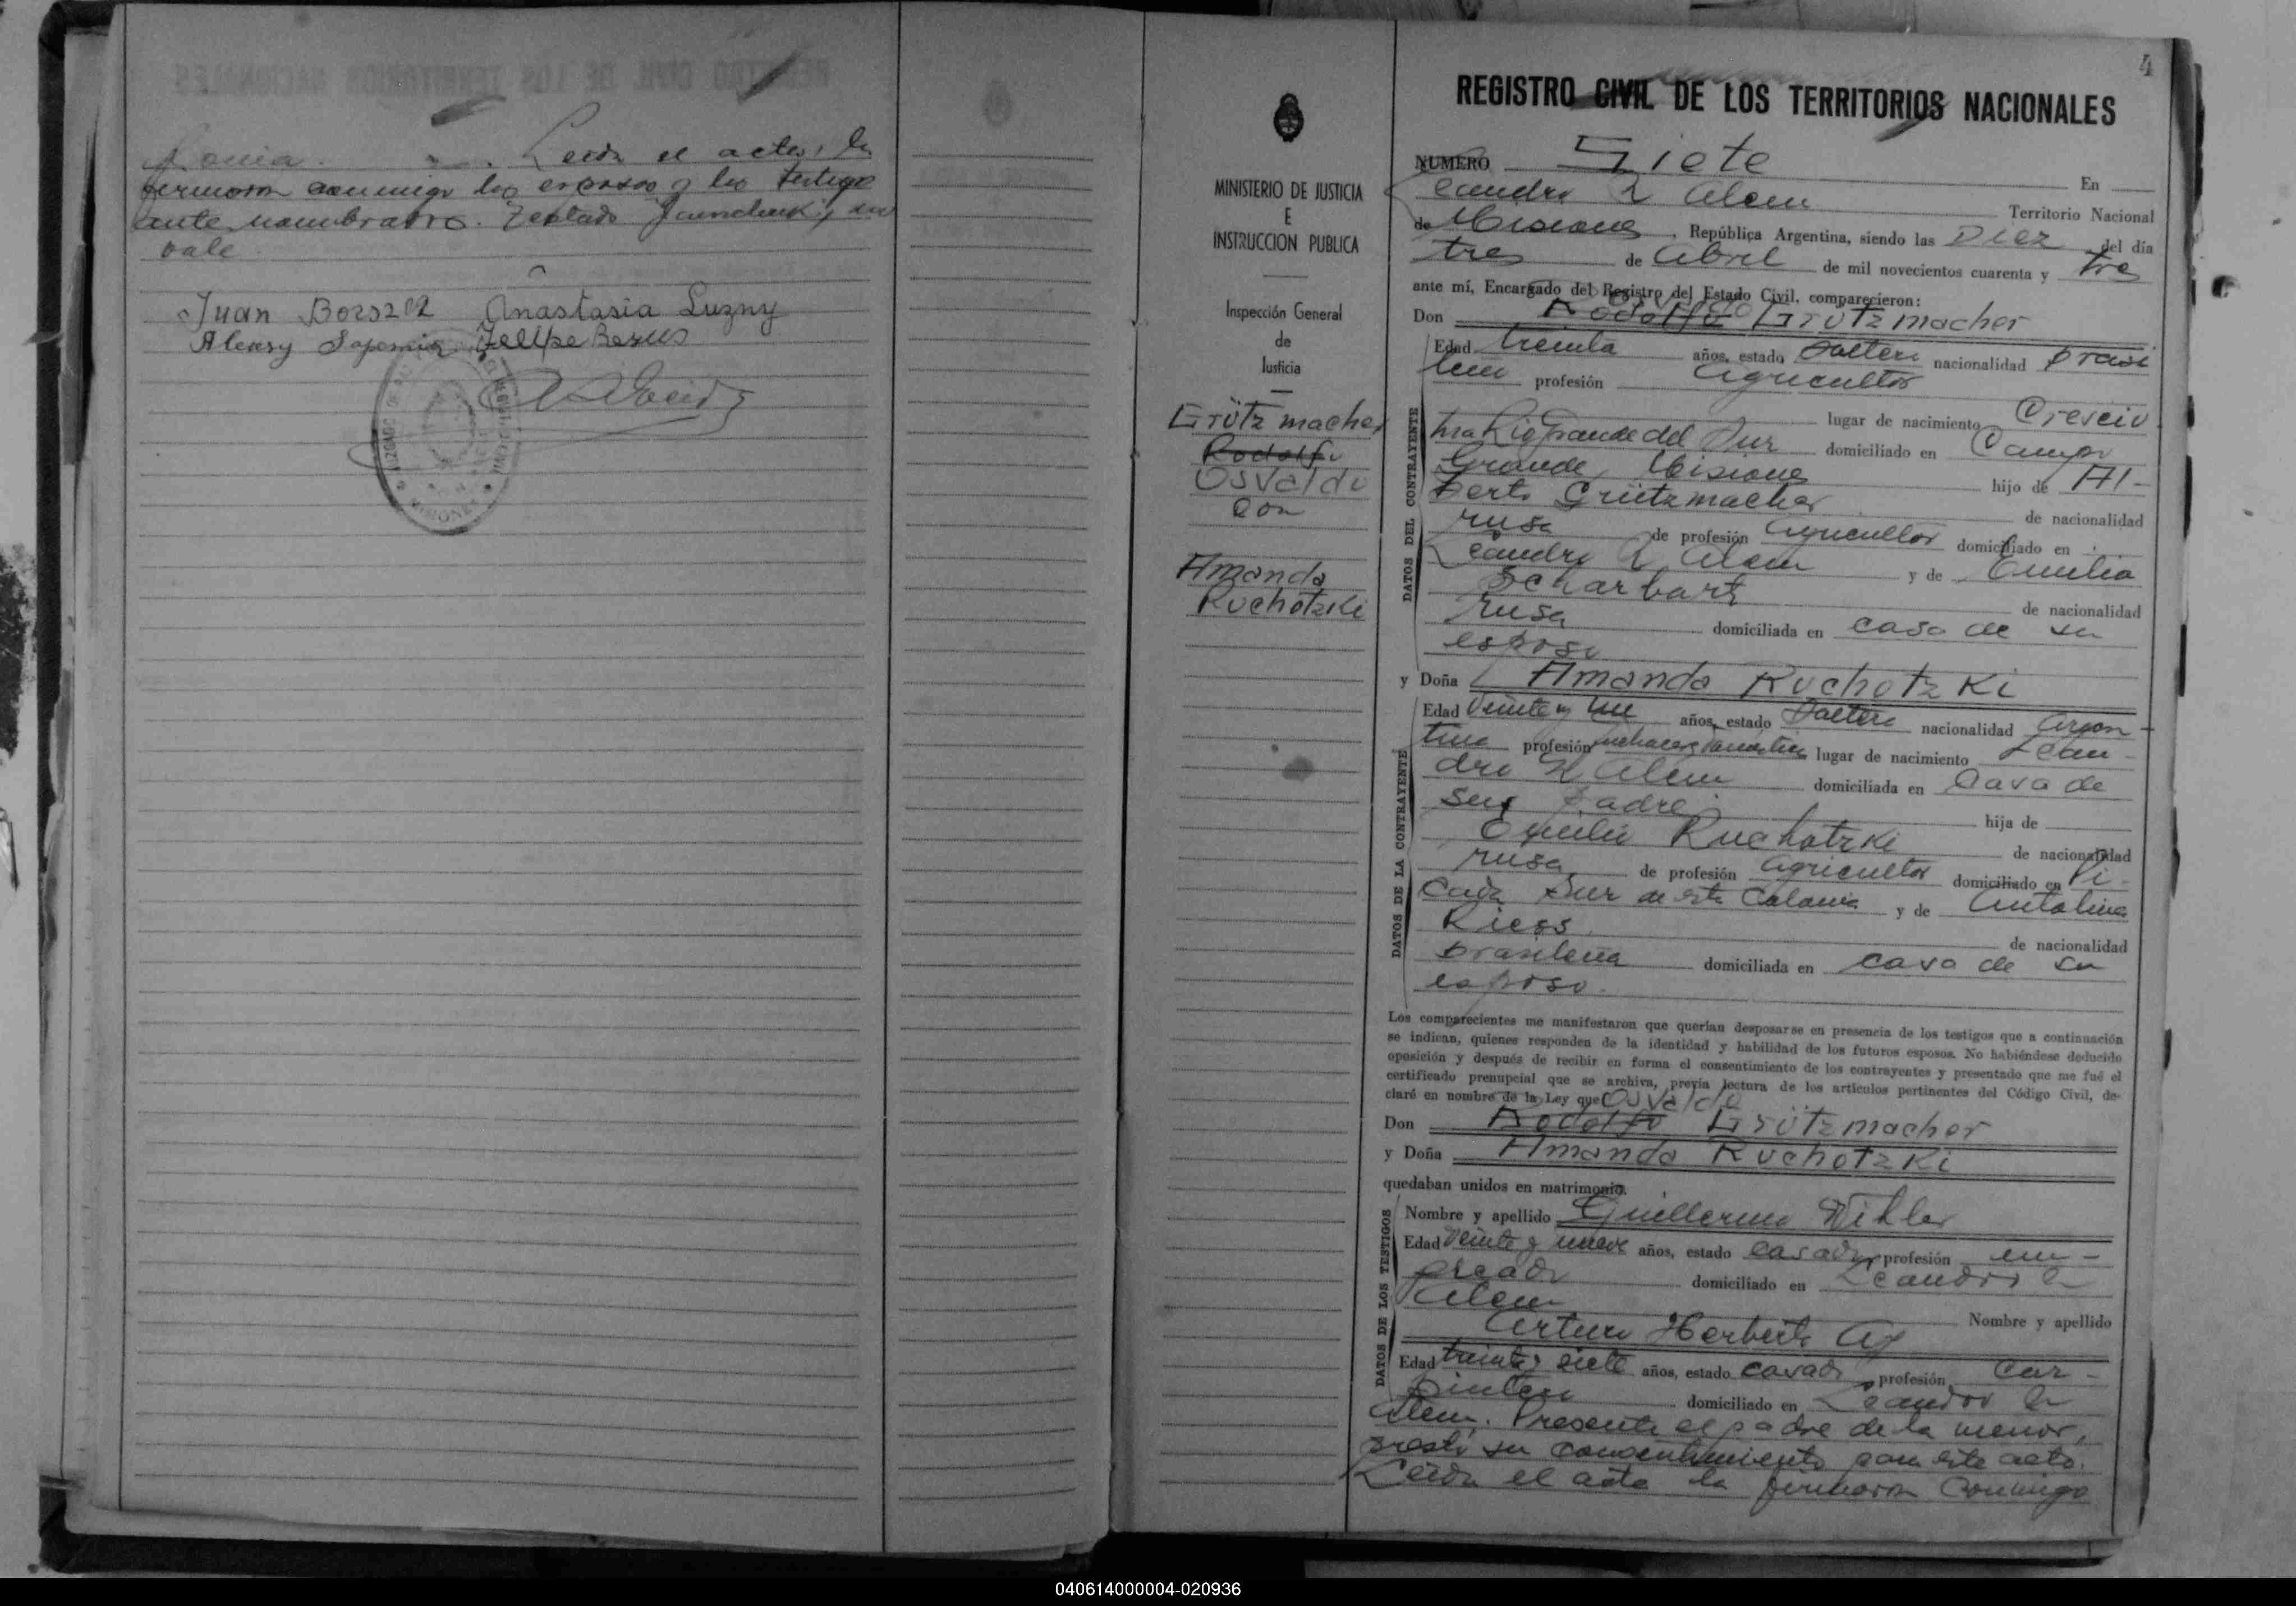 lonia. Leida el acta, la
firmaron conmigo los esposos y los testigos
ante nombrados. Testado
vale.
Juan Borszez Anastasia Luzny
Alexsy Felipe Bezus
MINISTERIO DE JUSTICIA
E
INSTRUCCION PUBLICA
Inspección General
de
Justicia
Grütz macher
Rodolfo
Osvaldo
con
Amanda
Ruchotzki
4
REGISTRO CIVIL DE LOS TERRITORIOS NACIONALES
NUMERO Siete En
Leandro N Alem Territorio Nacional
de Misiones, República Argentina, siendo las Diez del día
tres de Abril de mil novecientos cuarenta y tres
ante mí, Encargado del Registro del Estado Civil, comparecieron:
Osvaldo
Don Rodolfo Grütz macher
Edad treinta años, estado Soltero nacionalidad brasi
lera profesión agricultor
lugar de nacimiento
Rio Grande del Sur domiciliado en Campo
Grande, Misiones hijo de Al-
berto Grützmacher de nacionalidad
rusa de profesión agricultor domiciliado en
Leandro N Alem y de Emilia
Scharbart de nacionalidad
rusa domiciliada en casa de su
esposo
DATOS DEL CONTRAYENTE
y Doña Amanda Ruchotzki
Edad Veinte y un años, estado Soltera nacionalidad Argen-
tina profesión quehaceres domésticos lugar de nacimiento Lean-
dro N Alem domiciliada en Casa de
sus padre hija de
Emilio Ruchotzki de nacionalidad
rusa de profesión agricultor domiciliado en Pi-
cada Sur de esta Colonia y de Antolina
Riess de nacionalidad
brasilena domiciliada en casa de su
esposo.
DATOS DE LA CONTRAYENTE
Los comparecientes me manifestaron que querían desposarse en presencia de los testigos que a continuación
se indican, quienes responden de la identidad y habilidad de los futuros esposos. No habiéndose deducido
oposición y después de recibir en forma el consentimiento de los contrayentes y presentado que me fué el
certificado prenupcial que se archiva, previa lectura de los artículos pertinentes del Código Civil, de-
claré en nombre de la Ley que Osvaldo
Don Rodolfo Grützmacher
y Doña Amanda Ruchotzki
quedaban unidos en matrimonio.
Nombre y apellido Guillermo Wihler
Edad Veinte y nueve años, estado casado profesión em-
pleado domiciliado en Leandro N
Alem
Nombre y apellido
Arturo Herberto
Edad treinta y siete años, estado casado profesión Car-
pintero domiciliado en Leandro N
DATOS DE LOS TESTIGOS
Alem. Presente el padre de la menor,
prestó su consentimiento para este acto.
Leida el acta la firmaron conmigo
040614000004-020936